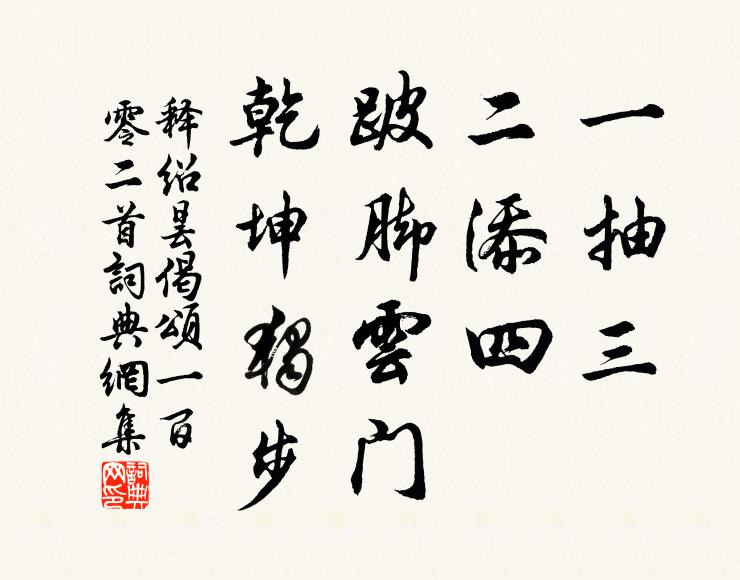 一抽三
二添四
跛脚雲门
乾坤獨步
释紹曇偈頌一百
零二首詞典網集
詞典
网印